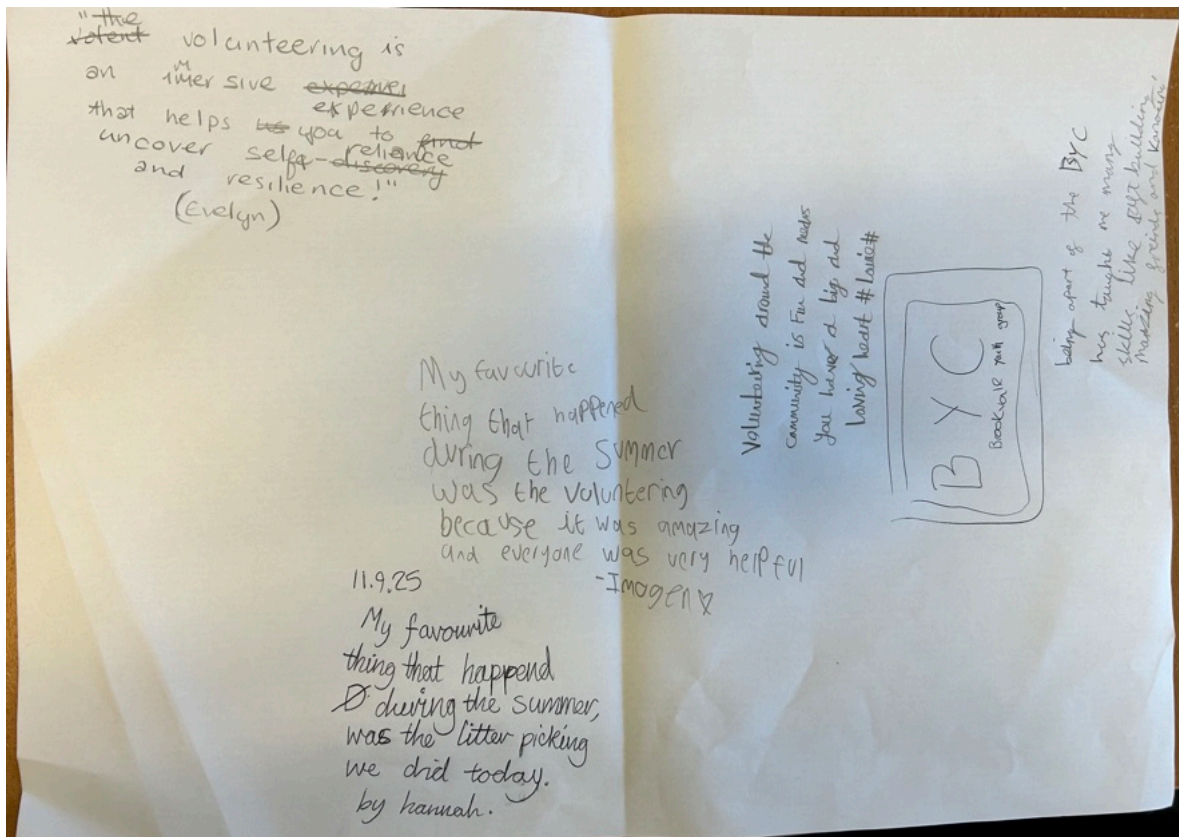 "the
volent volunteering is
an immersive experiei
experience
that helps us you to find
uncover self-reliance
discovery
and resilience!"
(Evelyn)
My favourite
thing that happened
during the Summer
was the voluntering
because it was amazing
and everyone was very helpful
-Imogen
11.9.25
My favourite
thing that happend
during the summer,
was the litter picking
we did today.
by hannah.
Volunteering around the
community is Fun and needs
you have a big and
loving heart #
B Y C
youth group
being apart of the BYC
has taught me many
skills like
making friends and